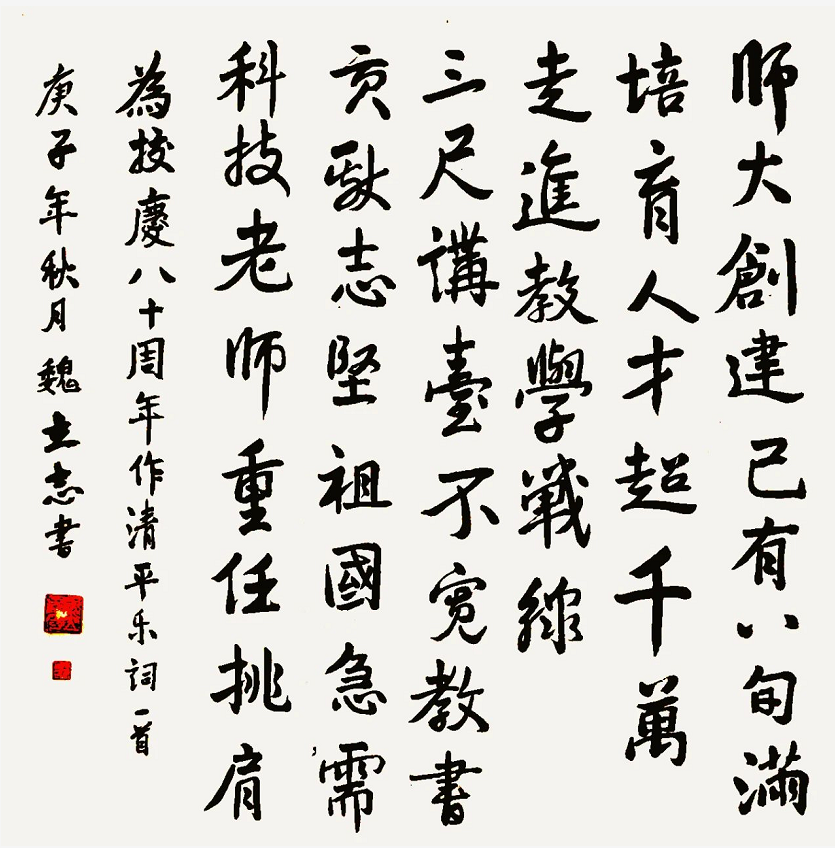 师大創建已有八旬滿
培育人才超千萬
走進教學戰線
三尺講臺不寬教書
貢献志堅祖國急需
科技老师重任挑肩
為校慶八十周年作清平乐詞一首
庚子年秋月魏立志書